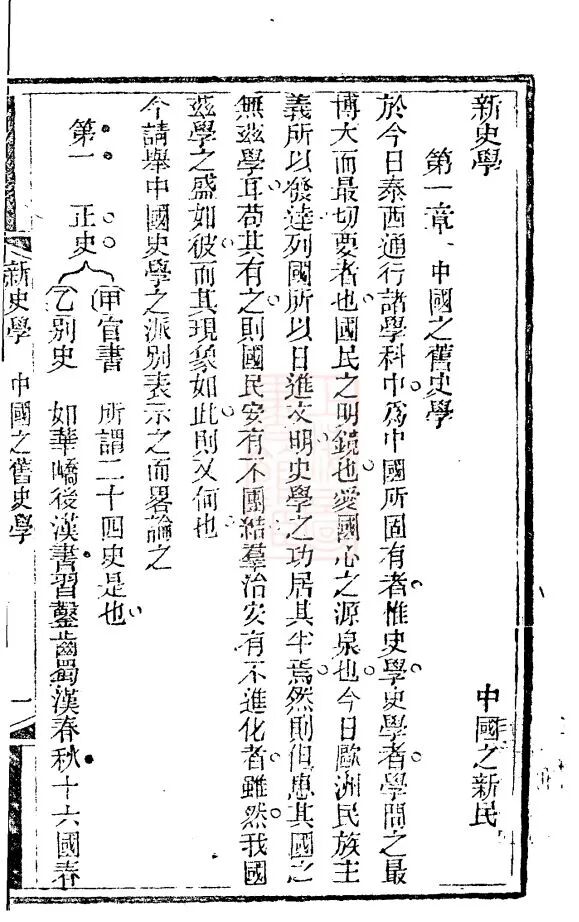 新史學 中國之新民
第一章 中國之舊史學
於今日泰西通行諸學科中爲中國所固有者惟史學史學者學問之最
博大而最切要者也國民之明鏡也愛國心之源泉也今日歐洲民族主
義所以發達列國所以日進文明史學之功居其半焉然則但患其國之
無茲學耳苟其有之則國民安有不團結羣治安有不進化者雖然我國
茲學之盛如彼而其現象如此則又何也
今請舉中國史學之派別表示之而畧論之
第一 正史
(甲)官書 所謂二十四史是也
(乙)別史 如華嶠後漢書習鑿齒蜀漢春秋十六國春
新史學 中國之舊史學 一